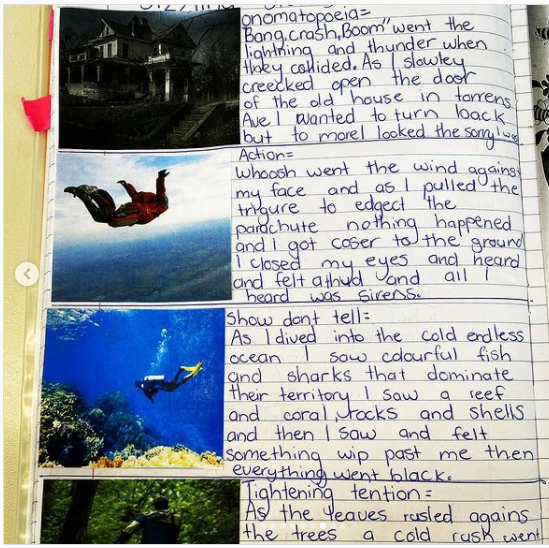 onomatopoeia=
"Bang,Crash,Boom" went the
lightning and thunder when
they collided. As I slowley
creecked open the door
of the old house in torrens
Ave I wanted to turn back
but to more I looked the sorry I was
Action=
Whoosh went the wind agains
my face and as I pulled the
trigure to edgect the
parachute nothing happened
and I got coser to the ground
I closed my eyes and heard
and felt a thud and all I
heard was sirens.
Show dont tell=
As I dived into the cold endless
ocean I saw colourful fish
and sharks that dominate
their territory I saw a reef
and coral, rocks and shells
and then I saw and felt
something wip past me then
everything went black.
Tightening tention=
As the leaves rusled agains
the trees a cold rush went